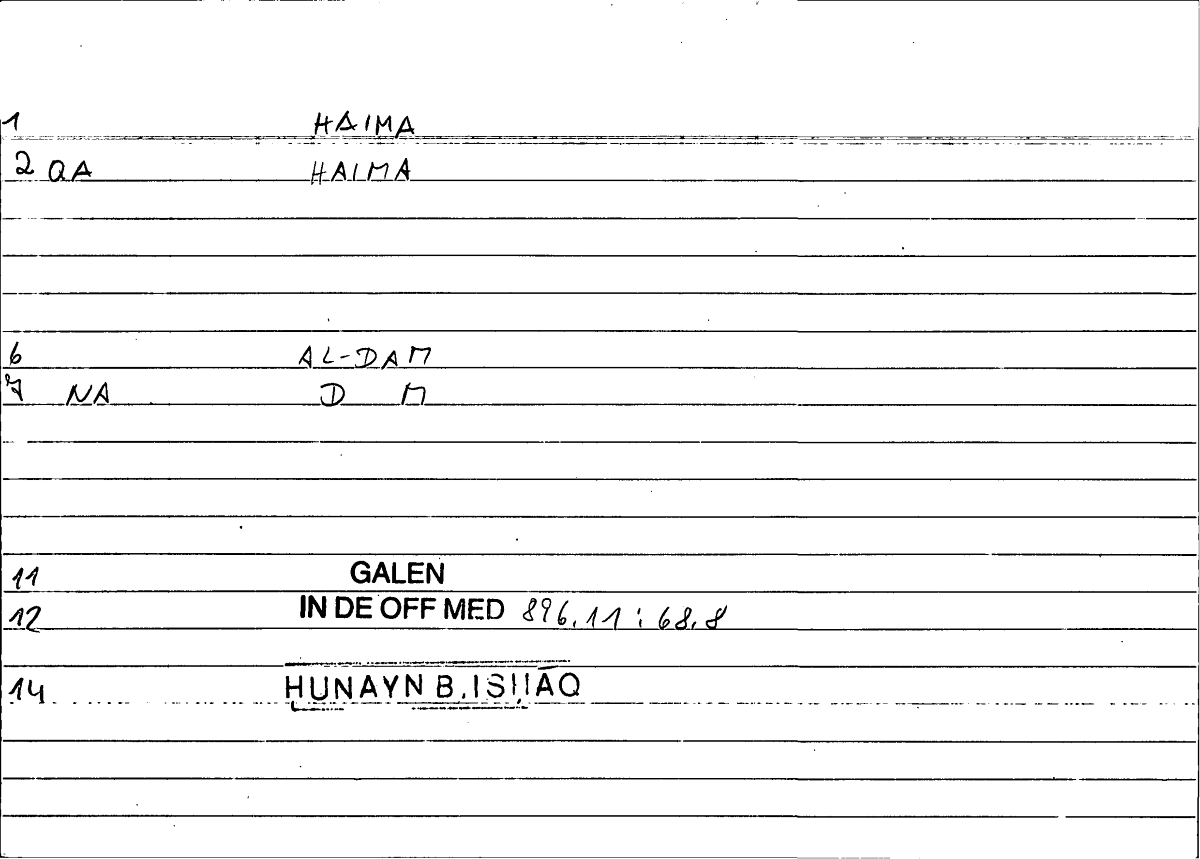 1 HAIMA
2 QA HAIMA
6 AL-DAM
7 NA D M
11 GALEN
12 IN DE OFF MED 896.11 : 68.8
14 HUNAYN B. ISḤĀQ